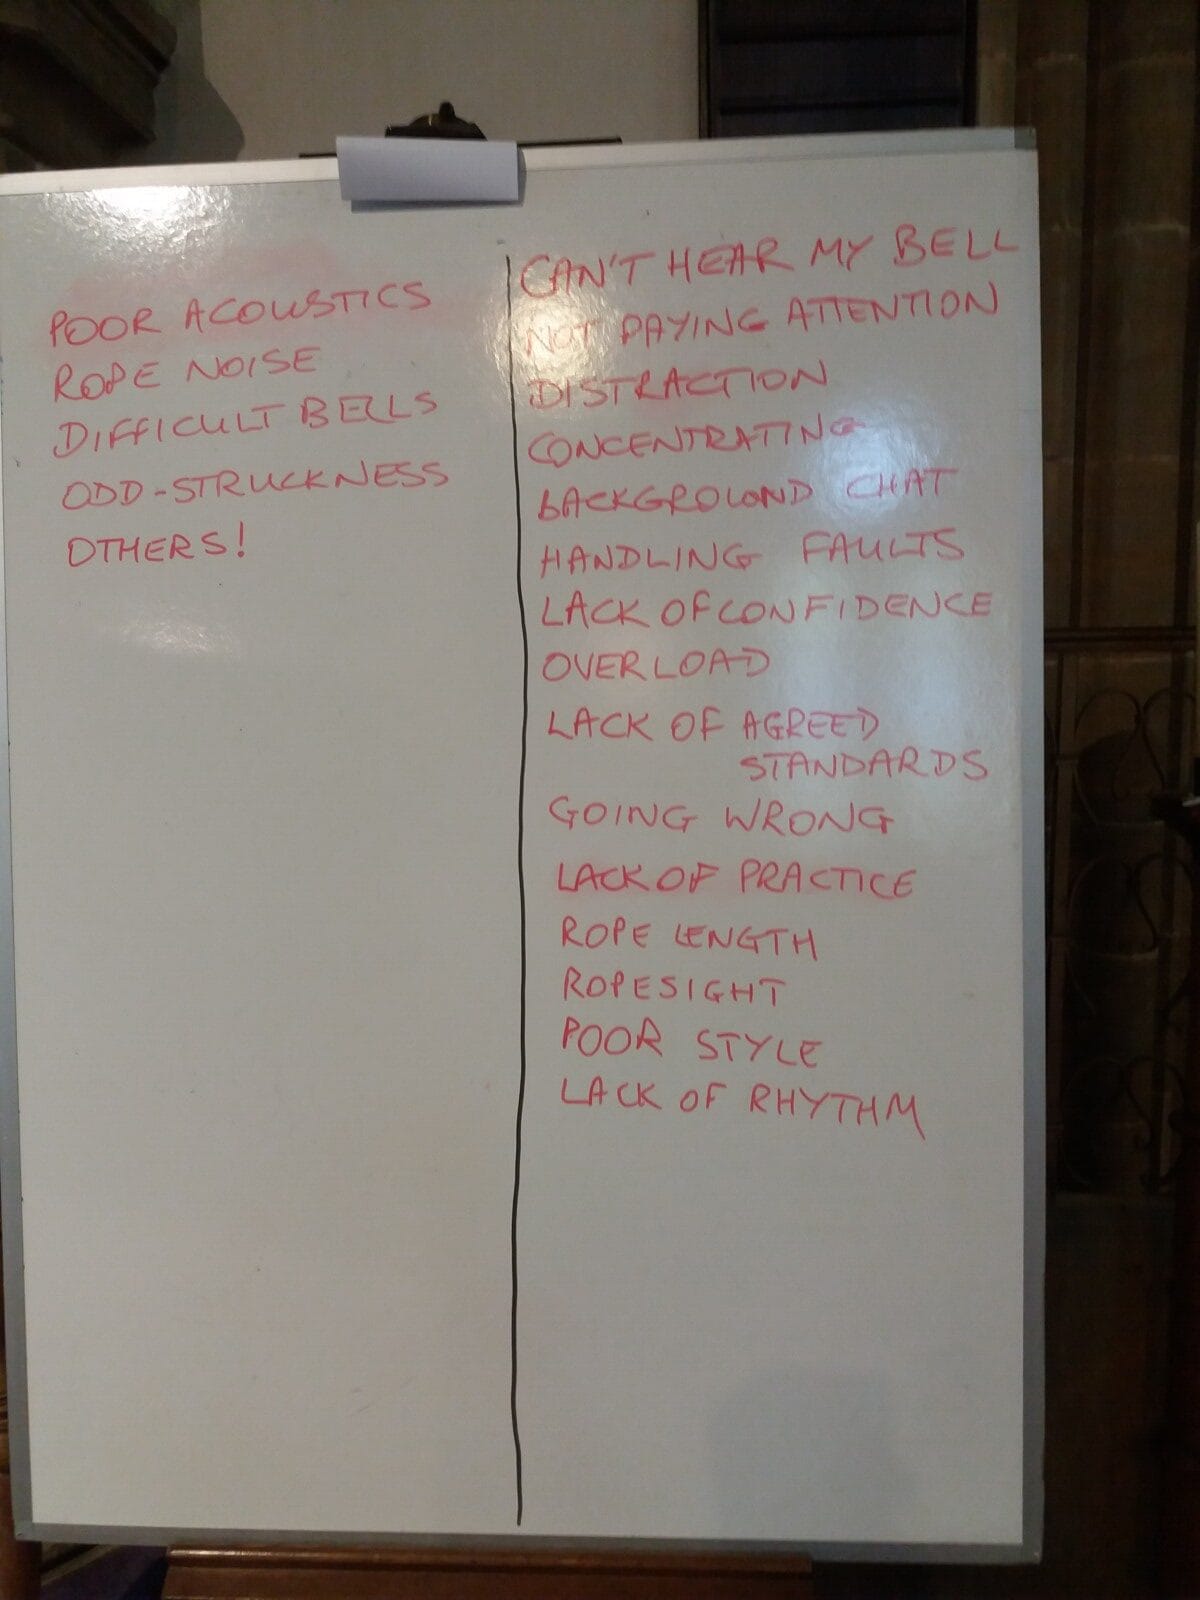 POOR ACOUSTICS
ROPE NOISE
DIFFICULT BELLS
ODD-STRUCKNESS
OTHERS!
CAN'T HEAR MY BELL
NOT PAYING ATTENTION
DISTRACTION
CONCENTRATING
BACKGROUND CHAT
HANDLING FAULTS
LACK OF CONFIDENCE
OVERLOAD
LACK OF AGREED
STANDARDS
GOING WRONG
LACK OF PRACTICE
ROPE LENGTH
ROPESIGHT
POOR STYLE
LACK OF RHYTHM